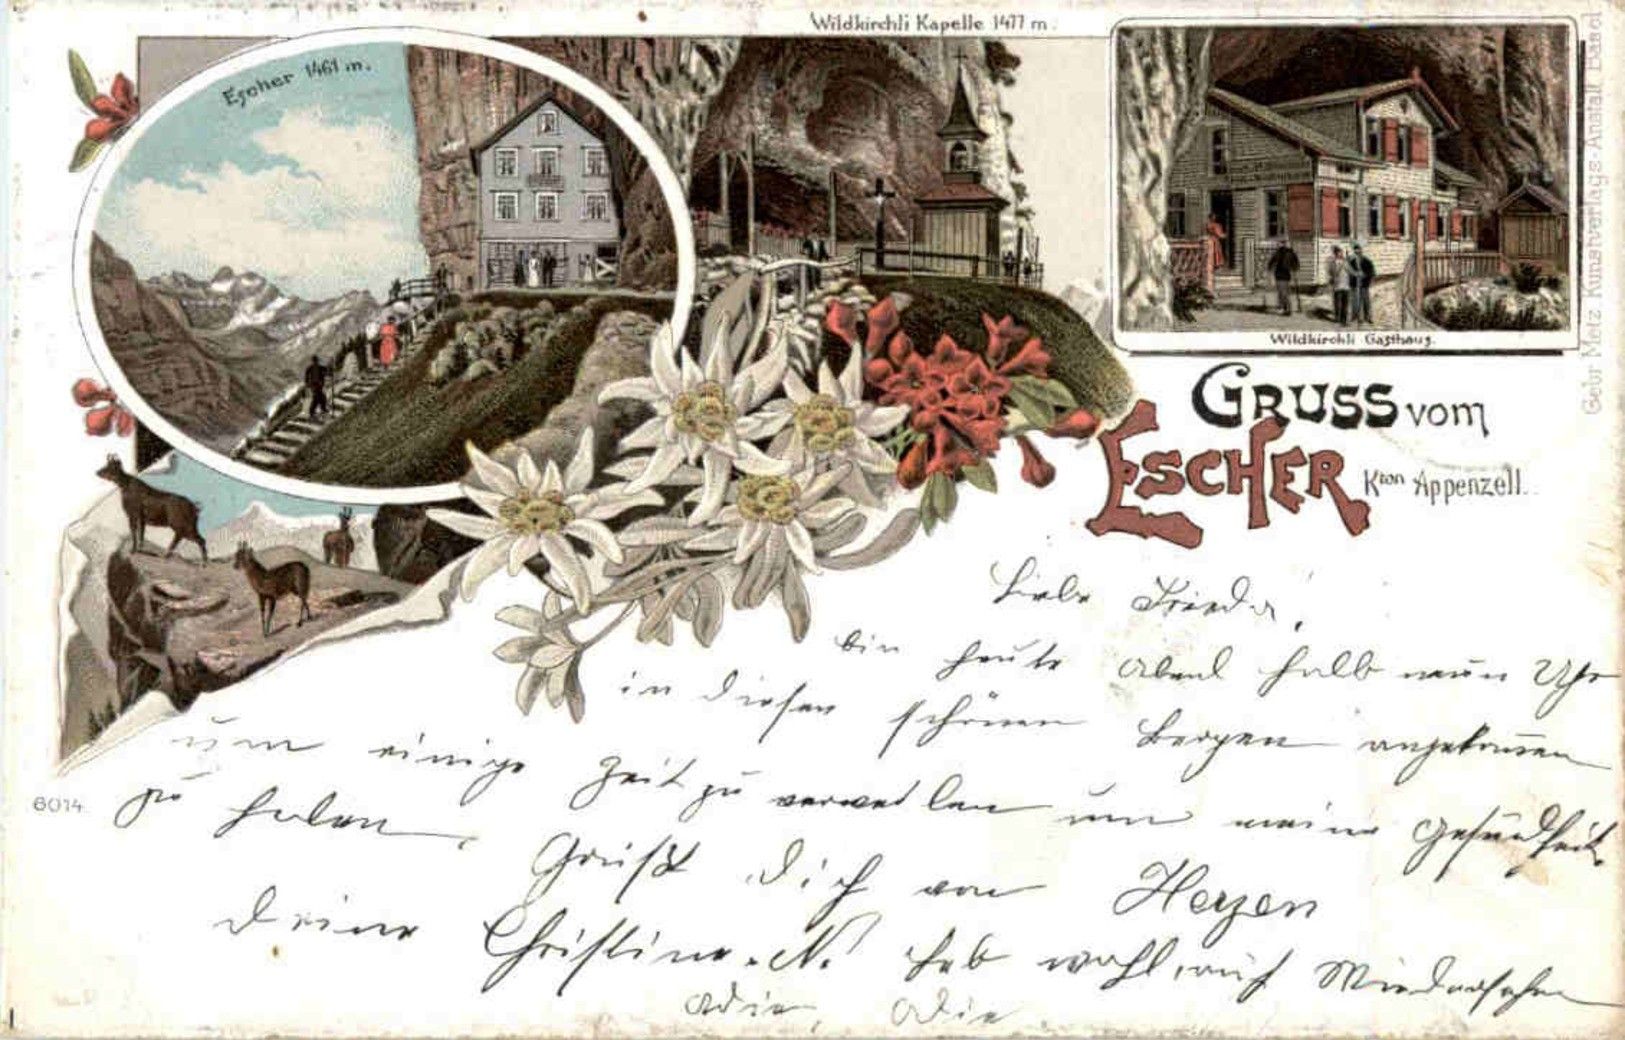 Wildkirchli Kapelle 1477 m.
Escher 1461 m.
Wildkirchli Gasthaus.
Gebr Metz Kunstverlags-Anstalt Basel
GRUSS vom
ESCHER Kton Appenzell.
Liebe Frieda,
bin heute Abend halb neun Uhr
in diesen schönen Bergen angekommen
um einige Zeit zu verweilen um meine Gesundheit
zu holen,
Grüßt Dich von Herzen
Deine Christine. N. Leb wohl, auf Wiedersehn
Adie, Adie
6014